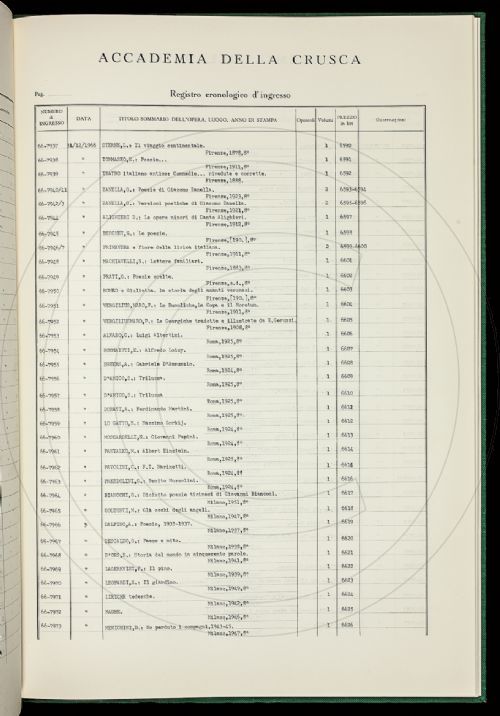 ACCADEMIA DELLA CRUSCA
Pag.
Registro cronologico d'ingresso
NUMERO di INGRESSO DATA TITOLO SOMMARIO DELL'OPERA, LUOGO, ANNO DI STAMPA Opuscoli Volumi PREZZO in lire Osservazioni
66-7937 31/12/1966 STERNE,L.: Il viaggio sentimentale. 1 6390
Firenze,1878,8º
66-7938 " TOMMASEO,N.: Poesie... 1 6391
Firenze,1911,8º
66-7939 " TEATRO italiano antico: Commedie... rivedute e corrette. 1 6392
Firenze,1888.
ZANELLA,G.: Poesie di Giacomo Zanella. 2 6393-6394
Firenze,1923,8º
" ZANELLA,G.: Versioni poetiche di Giacomo Zanella. 2 6395-6396
Firenze,1921,8º
66-7944 " ALIGHIERI D.: Le opere minori di Dante Alighieri. 1 6397
Firenze,1912,8º
66-7945 " BERCHET,G.: Le poesie. 1 6398
Firenze,[190.],8º
66-7946/7 " PRIMAVERA e fiore della lirica italiana. 2 6399-6400
Firenze,1911,8º
66-7948 " MACHIAVELLI,N.: Lettere familiari. 1 6601
Firenze,1883,8º
66-7949 " PRATI,G.: Poesie scelte. 1 6602
Firenze,s.d.,8º
66-7950 " ROMEO e Giulietta. La storia degli amanti veronesi. 1 6603
Firenze,[190.],8º
66-7951 " VERGILIUS,MARO,P.: Le Bucoliche,la Copa e il Moretum. 1 6604
Firenze,1911,8º
66-7952 " VERGILIUS,MARO,P.: Le Georgiche tradotte e illustrate da 1 6605
Firenze,1908,8º
66-7953 " ALVARO,C.: Luigi Albertini. 1 6606
Roma,1925,8º
66-7954 " Alfredo Loisy. 1 6607
Roma,1925,8º
66-7955 " Gabriele D'Annunzio. 1 6608
Roma,1924,8º
66-7956 " D'AMICO,S.: Trilussa. 1 6609
Roma,1925,8º
66-7957 " D'AMICO,S.: Trilussa 1 6610
Roma,1925,8º
66-7958 " DONATI,A.: Ferdinando Martini. 1 6611
Roma,1925,8º
66-7959 " LO GATTO,E.: Massimo Gorkij. 1 6612
Roma,1924,8º
66-7960 " Giovanni Papini. 1 6613
Roma,1924,8º
66-7961 " Albert Einstein. 1 6614
Roma,1925,8º
66-7962 " PAVOLINI,C.: F.T. Marinetti. 1 6615
Roma,1924,8º
66-7963 " PREZZOLINI,G.: Benito Mussolini. 1 6616
Roma,1924,8º
66-7964 " BIANCONI,G.: Diciotto poesie ticinesi di Giovanni Bianconi. 1 6617
Milano,1951,8º
66-7965 " Già occhi degli angeli. 1 6618
Milano,1947,8º
66-7966 " DALPINO,A.: Poesie, 1905-1937. 1 6619
Milano,1937,8º
66-7967 " 1 6620
Milano,1938,8º
66-7968 " Storia del mondo in cinquecento parole. 1 6621
Milano,1943,8º
66-7969 " Il pino. 1 6622
Milano,1939,8º
66-7970 " LEOPARDI,G.: Il giardino. 1 6623
Milano,1949,8º
66-7971 " LIRICHE tedesche. 1 6624
Milano,1942,8º
66-7972 " 1 6625
Milano,1946,8º
66-7973 " Ho perduto i compagni,1943-45. 1 6626
Milano,1947,8º